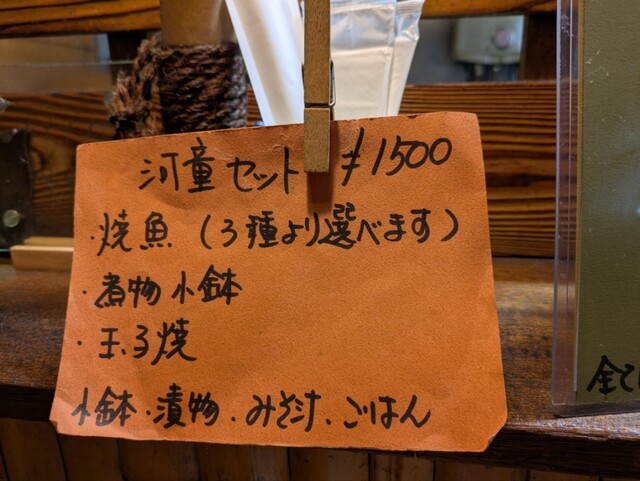 河童セット ¥1500
・焼魚（3種より選べます）
・煮物小鉢
・玉子焼
小鉢・漬物・みそ汁・ごはん
全て